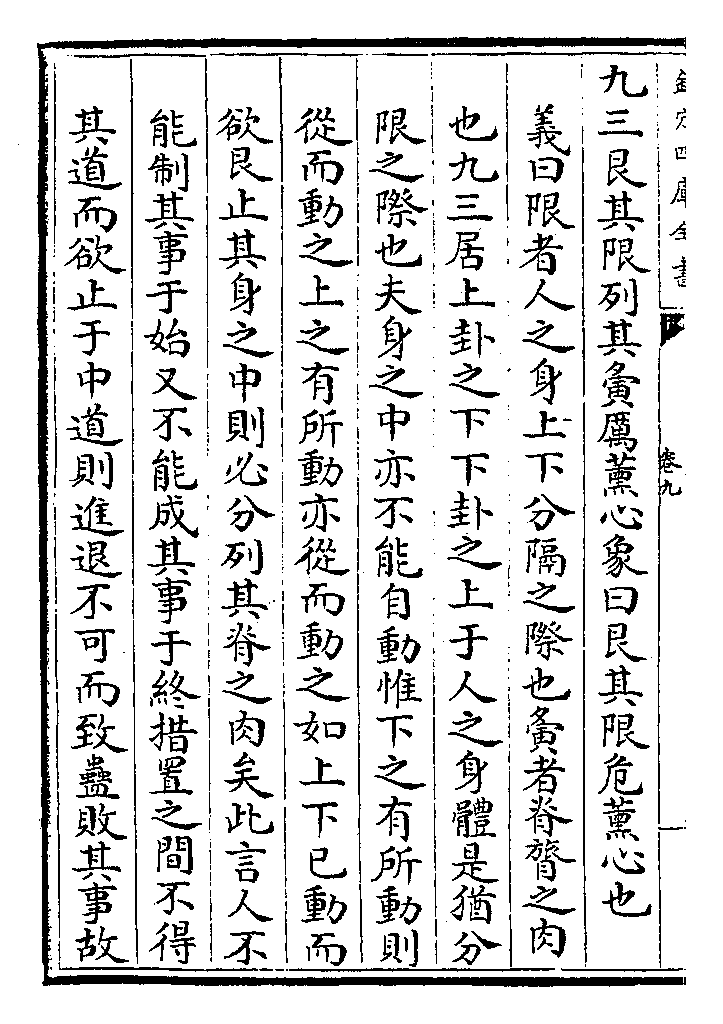 欽定四庫全書
卷九
九三艮其限列其夤厲薰心象曰艮其限危薰心也
義曰限者人之身上下分隔之際也夤者脊膂之肉
也九三居上卦之下下卦之上于人之身體是猶分
限之際也夫身之中亦不能自動惟下之有所動則
從而動之上之有所動亦從而動之如上下已動而
欲艮止其身之中則必分列其脊之肉矣此言人不
能制其事于始又不能成其事于終措置之間不得
其道而欲止于中道則進退不可而致蠱敗其事故